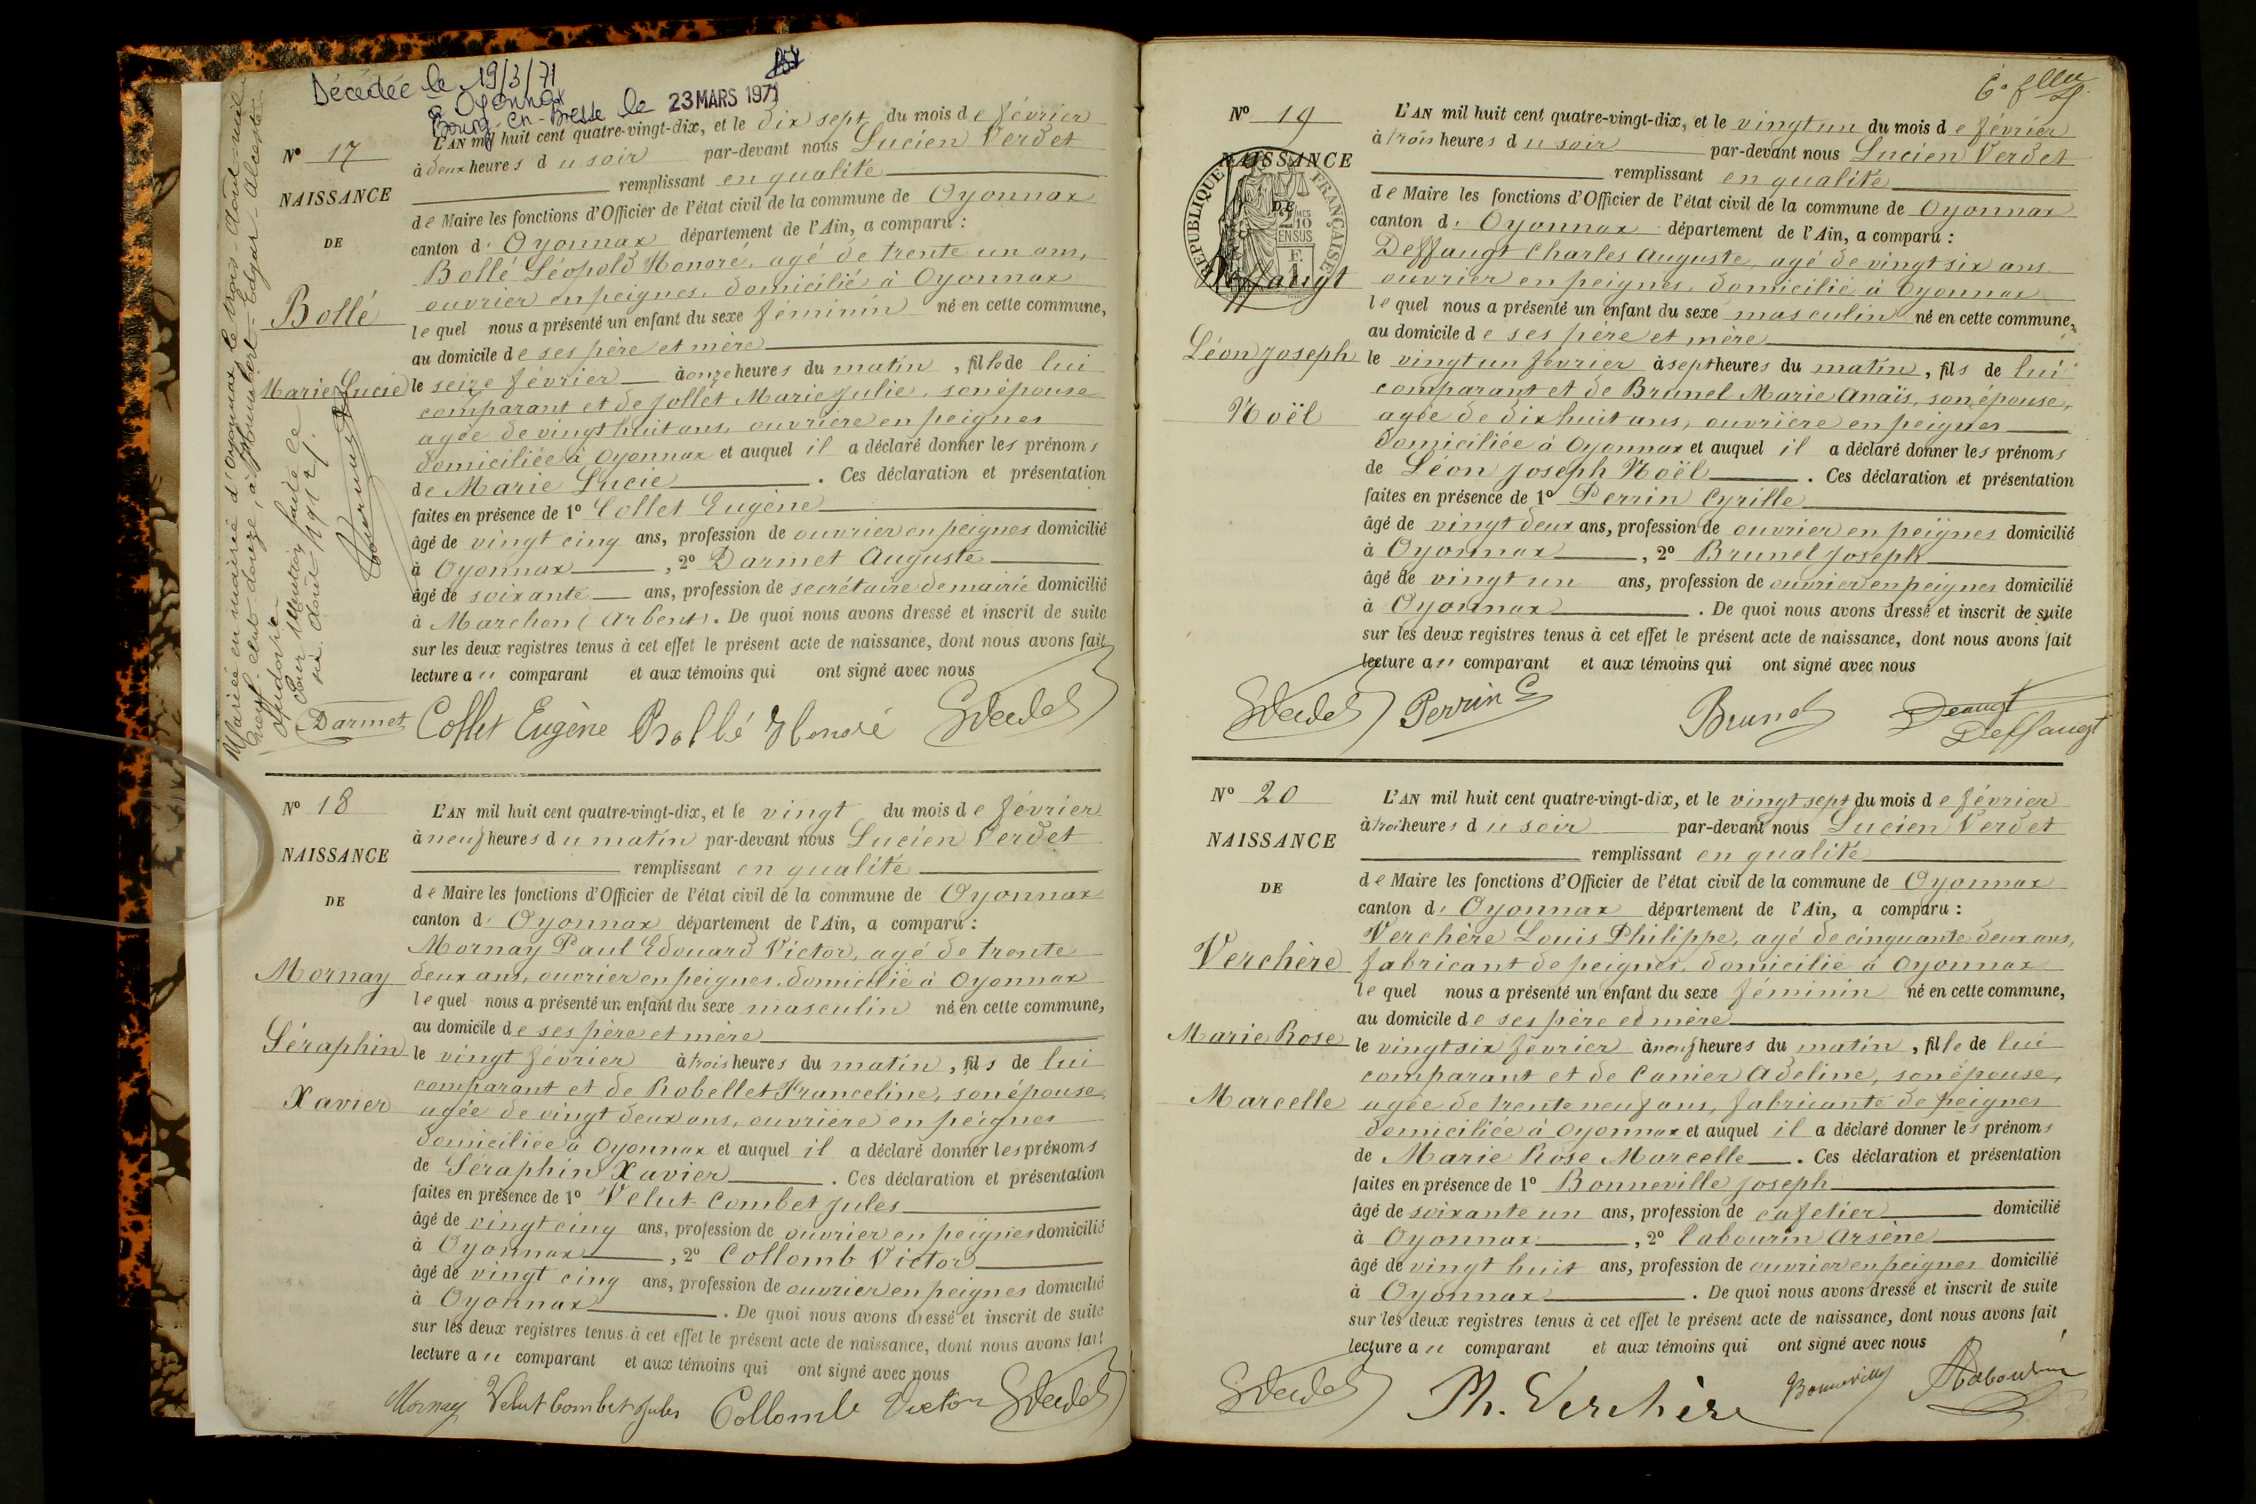 Décédée le 19/3/71
à Oyonnax
Bourg-en-Bresse le 23 MARS 1971
Nº 17
NAISSANCE
DE
Bollé
Marie Lucie
Mariée en mairie d'Oyonnax le trois Août mil
neuf cent douze, à Edgar Alceste
Pour Mention faite le
six Août 1912.
L'AN mil huit cent quatre-vingt-dix, et le dix sept du mois de février
à deux heures du soir par-devant nous Lucien Verdet
remplissant en qualité
de Maire les fonctions d'Officier de l'état civil de la commune de Oyonnax
canton d' Oyonnax département de l'Ain, a comparu :
Bollé Léopold Honoré, agé de trente un ans,
ouvrier en peignes, domicilié à Oyonnax
lequel nous a présenté un enfant du sexe féminin né en cette commune,
au domicile de ses père et mère
le seize février à onze heures du matin, fille de lui
comparant et de Jollet Marie Julie, son épouse
agée de vingt huit ans, ouvrière en peignes
domiciliée à Oyonnax et auquel il a déclaré donner les prénoms
de Marie Lucie . Ces déclaration et présentation
faites en présence de 1º Collet Eugène
âgé de vingt cinq ans, profession de ouvrier en peignes domicilié
à Oyonnax , 2º Darmet Auguste
âgé de soixante ans, profession de secrétaire de mairie domicilié
à Marchon (Arbent). De quoi nous avons dressé et inscrit de suite
sur les deux registres tenus à cet effet le présent acte de naissance, dont nous avons fait
lecture au comparant et aux témoins qui ont signé avec nous
Darmet Collet Eugène Bollé Honoré
Nº 18
NAISSANCE
DE
Mornay
Séraphin
Xavier
L'AN mil huit cent quatre-vingt-dix, et le vingt du mois de février
à neuf heures du matin par-devant nous Lucien Verdet
remplissant en qualité
de Maire les fonctions d'Officier de l'état civil de la commune de Oyonnax
canton d' Oyonnax département de l'Ain, a comparu :
Mornay Paul Edouard Victor, agé de trente
deux ans, ouvrier en peignes, domicilié à Oyonnax
lequel nous a présenté un enfant du sexe masculin né en cette commune,
au domicile de ses père et mère
le vingt février à trois heures du matin, fils de lui
comparant et de Robellet Franceline, son épouse
agée de vingt deux ans, ouvrière en peignes
domiciliée à Oyonnax et auquel il a déclaré donner les prénoms
de Séraphin Xavier . Ces déclaration et présentation
faites en présence de 1º Velut Combet Jules
âgé de vingt cinq ans, profession de ouvrier en peignes domicilié
à Oyonnax , 2º Collomb Victor
âgé de vingt cinq ans, profession de ouvrier en peignes domicilié
à Oyonnax . De quoi nous avons dressé et inscrit de suite
sur les deux registres tenus à cet effet le présent acte de naissance, dont nous avons fait
lecture au comparant et aux témoins qui ont signé avec nous
Mornay Velut Combet Jules Collomb Victor
Nº 19
NAISSANCE
DE
RÉPUBLIQUE FRANÇAISE
Deffaugt
Léon Joseph
Noël
L'AN mil huit cent quatre-vingt-dix, et le vingt un du mois de février
à trois heures du soir par-devant nous Lucien Verdet
remplissant en qualité
de Maire les fonctions d'Officier de l'état civil de la commune de Oyonnax
canton d' Oyonnax département de l'Ain, a comparu :
Deffaugt Charles Auguste, agé de vingt six ans
ouvrier en peignes, domicilié à Oyonnax
lequel nous a présenté un enfant du sexe masculin né en cette commune,
au domicile de ses père et mère
le vingt un février à sept heures du matin, fils de lui
comparant et de Brunel Marie Anaïs, son épouse,
agée de dix huit ans, ouvrière en peignes
domiciliée à Oyonnax et auquel il a déclaré donner les prénoms
de Léon Joseph Noël . Ces déclaration et présentation
faites en présence de 1º Perrin Cyrille
âgé de vingt deux ans, profession de ouvrier en peignes domicilié
à Oyonnax , 2º Brunel Joseph
âgé de vingt un ans, profession de ouvrier en peignes domicilié
à Oyonnax . De quoi nous avons dressé et inscrit de suite
sur les deux registres tenus à cet effet le présent acte de naissance, dont nous avons fait
lecture au comparant et aux témoins qui ont signé avec nous
Perrin C Brunel Deffaugt
Nº 20
NAISSANCE
DE
Verchère
Marie Rose
Marcelle
L'AN mil huit cent quatre-vingt-dix, et le vingt sept du mois de février
à trois heures du soir par-devant nous Lucien Verdet
remplissant en qualité
de Maire les fonctions d'Officier de l'état civil de la commune de Oyonnax
canton d' Oyonnax département de l'Ain, a comparu :
Verchère Louis Philippe, agé de cinquante deux ans,
fabricant de peignes, domicilié à Oyonnax
lequel nous a présenté un enfant du sexe féminin né en cette commune,
au domicile de ses père et mère
le vingt six février à neuf heures du matin, fille de lui
comparant et de Canier Adeline, son épouse,
agée de trente neuf ans, fabricante de peignes
domiciliée à Oyonnax et auquel il a déclaré donner les prénoms
de Marie Rose Marcelle . Ces déclaration et présentation
faites en présence de 1º Bonneville Joseph
âgé de soixante un ans, profession de cafetier domicilié
à Oyonnax , 2º Tabourin Arsène
âgé de vingt huit ans, profession de ouvrier en peignes domicilié
à Oyonnax . De quoi nous avons dressé et inscrit de suite
sur les deux registres tenus à cet effet le présent acte de naissance, dont nous avons fait
lecture au comparant et aux témoins qui ont signé avec nous
Ph. Verchère Bonneville